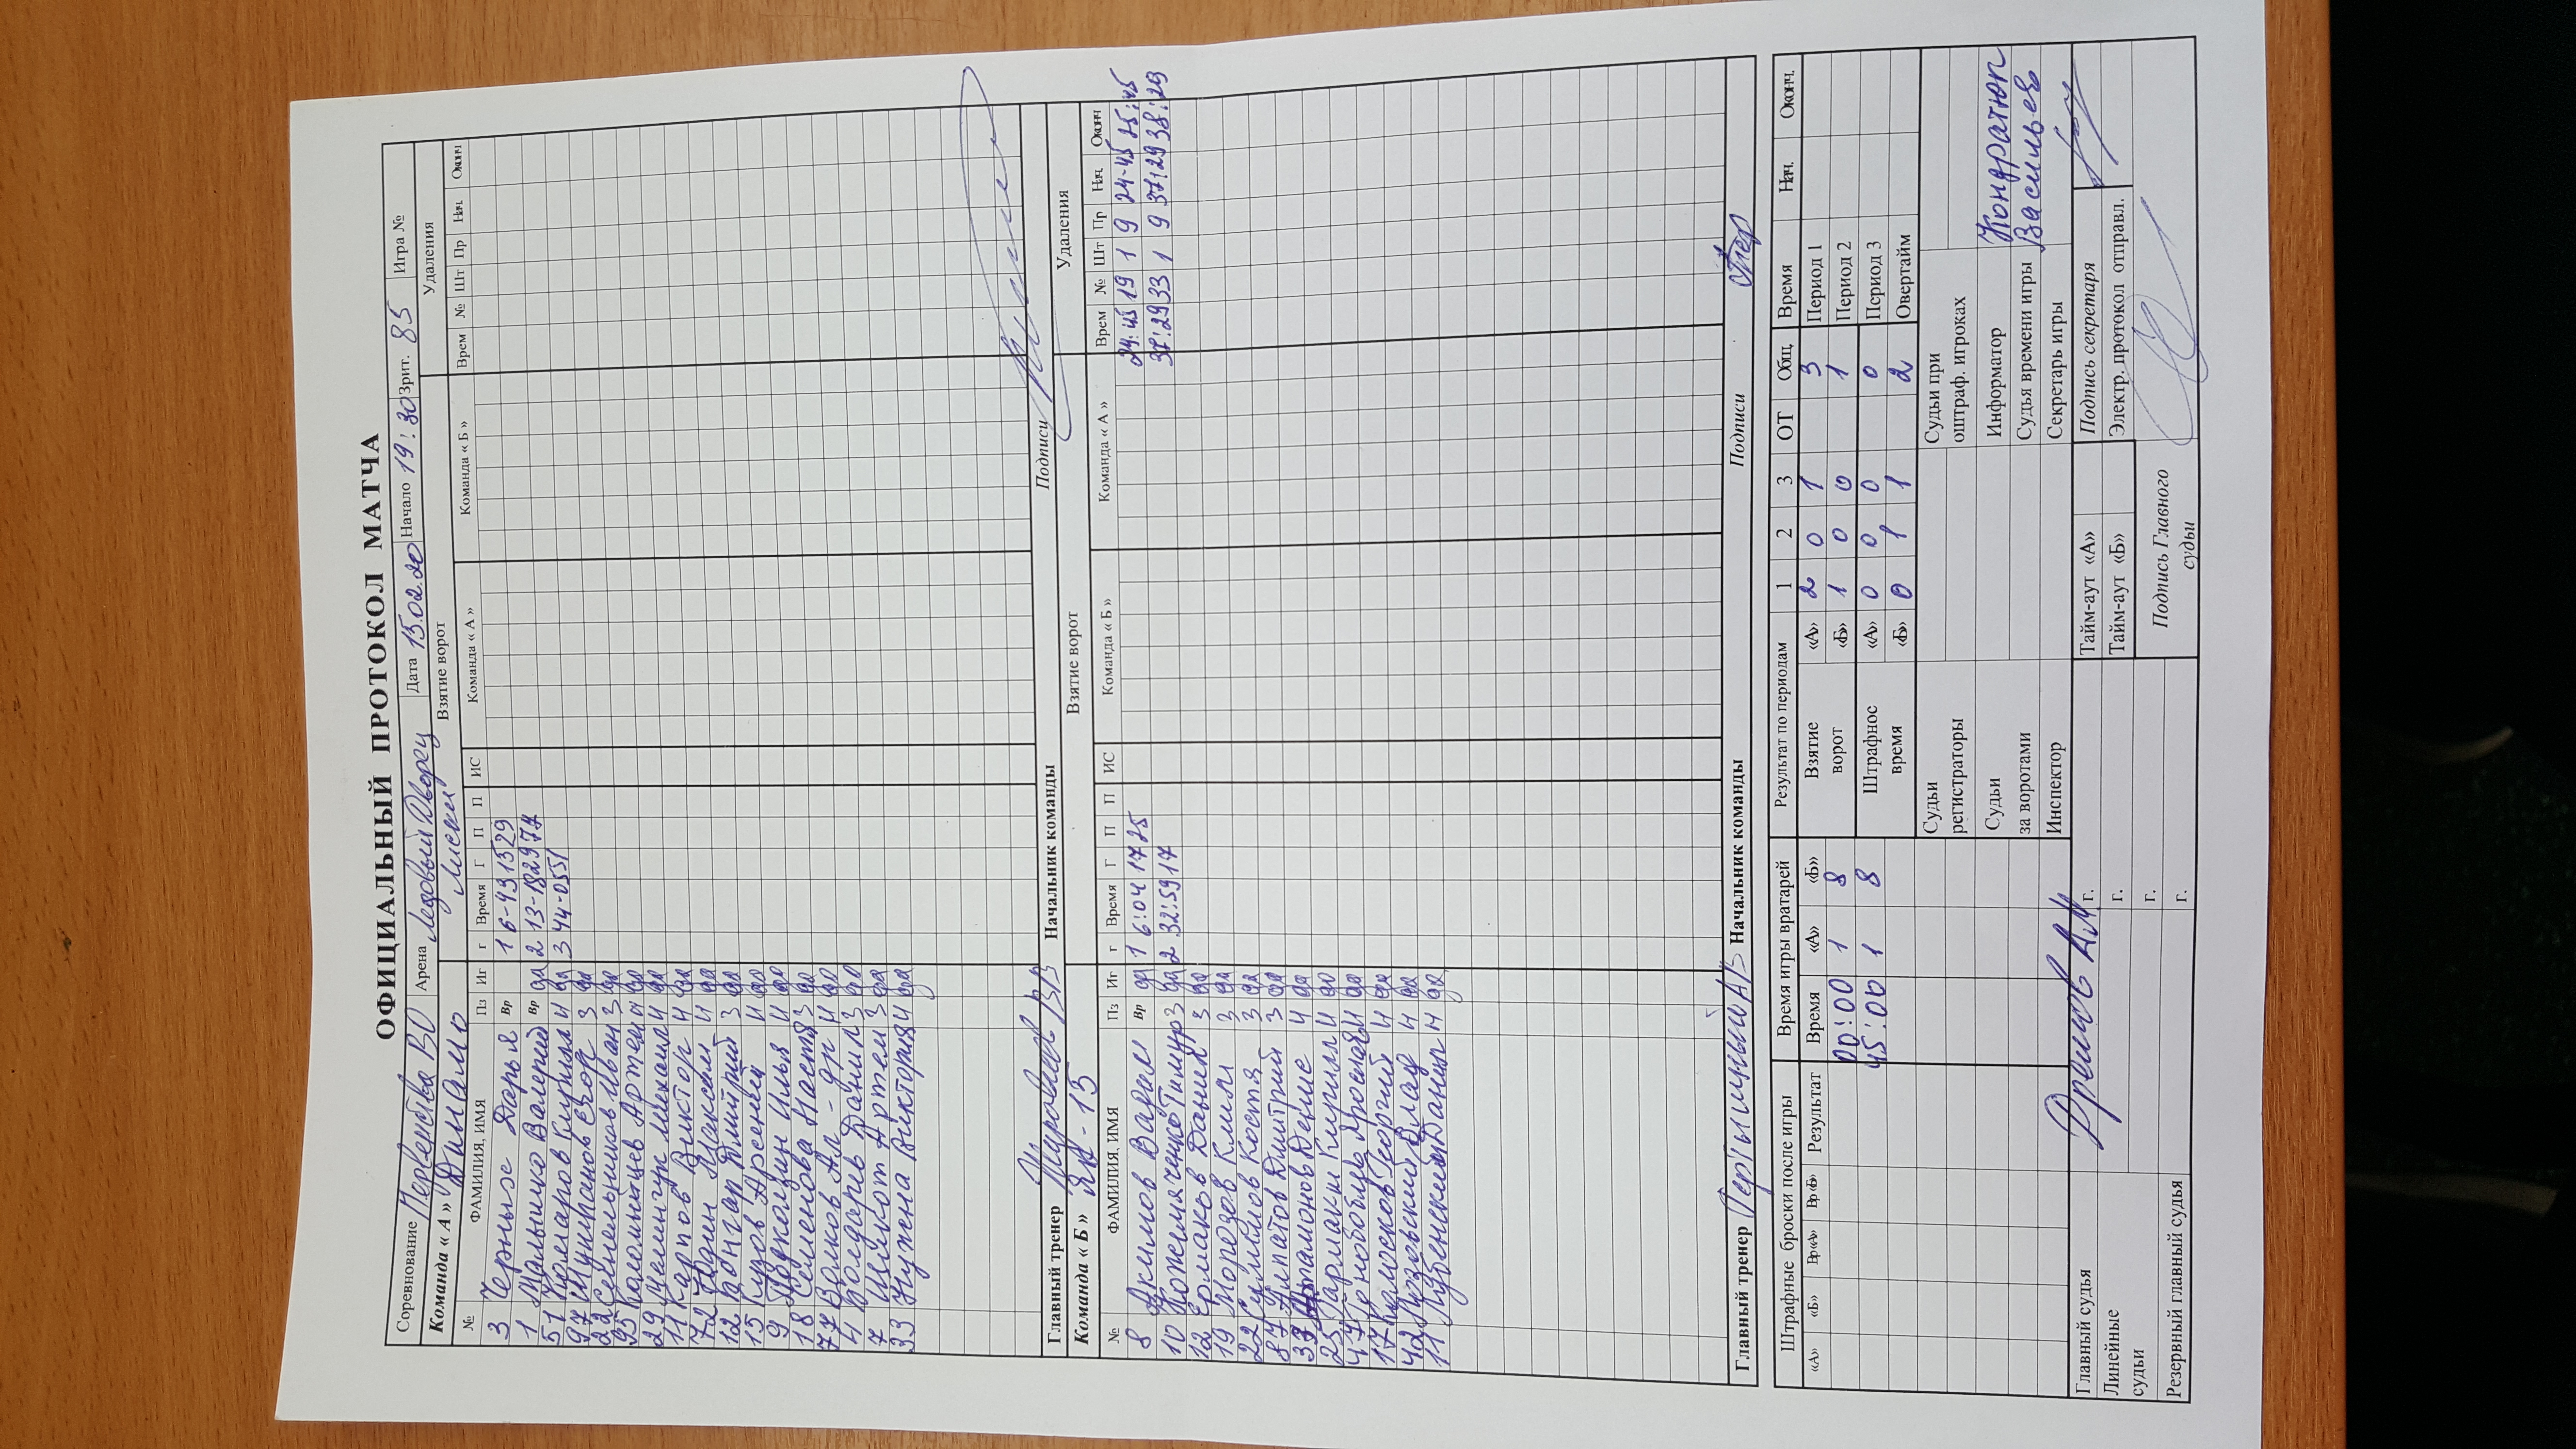 ОФИЦИАЛЬНЫЙ ПРОТОКОЛ МАТЧА
Соревнование Первенство ВО Арена Ледовый Дворец Дата 15.02.20 Начало 19:30 Зрит. 85 Игра №
Команда « А » Динамо Лиски Взятие ворот Удаления
№ ФАМИЛИЯ, ИМЯ Пз Иг Команда « А » Команда « Б »
г Время Г П П ИС Врем № Шт Пр Нач. Окон
3 Черных Дарья Вр 1 6-43 13 29
1 Малышко Валерий Вр да 2 13-18 29 77
51 Комаров Кирилл Н да 3 44-05 51
97 Егор З да
22 Сительников Иван З да
95 Коломыйцев Артем Н да
29 Михаил Н да
11 Карпов Виктор Н да
72 Юдин Максим Н да
12 Бонгар Дмитрий З да
15 Арсений Н да
9 Илья Н да
18 Семенова Настя З да
77 Волков Ал-др Н да
4 Бондарь Данил З да
7 Артем З да
33 Нужна Виктория Н да
Главный тренер Начальник команды Подписи
Команда « Б » - 13 Взятие ворот Удаления
№ ФАМИЛИЯ, ИМЯ Пз Иг Команда « Б » Команда « А »
г Время Г П П ИС Врем № Шт Пр Нач. Окон
8 Акимов Вадим Вр да 1 6:04 17 25 24:45 19 1 9 24-45 25:45
10 Кожемяченко Тимур З да 2 32:59 17 37:29 33 1 9 37:29 38:29
12 Ермаков Данил З да
19 Морозов Клим З да
22 Костя З да
87 Дмитрий З да
33 Денис Н да
25 Кирилл Н да
47 Ярослав Н да
17 Георгий Н да
42 Влад Н да
11 Данил Н да
Главный тренер Начальник команды Подписи
Штрафные броски после игры Время игры вратарей Результат по периодам 1 2 3 ОТ Общ. Время Нач. Оконч.
«А» «Б» Вр«А» Вр«Б» Результат Время «А» «Б» Взятие ворот «А» 2 0 1 3 Период 1
00:00 1 8 «Б» 1 0 0 1 Период 2
45:00 1 8 Штрафное время «А» 0 0 0 0 Период 3
«Б» 0 1 1 2 Овертайм
Судьи регистраторы Судьи при оштраф. игроках
Судьи за воротами Информатор Кондратюк
Судья времени игры Васильев
Инспектор Секретарь игры
Главный судья г. Тайм-аут «А» Подпись секретаря
Линейные судьи г. Тайм-аут «Б» Электр. протокол отправл.
г. Подпись Главного судьи
Резервный главный судья г.